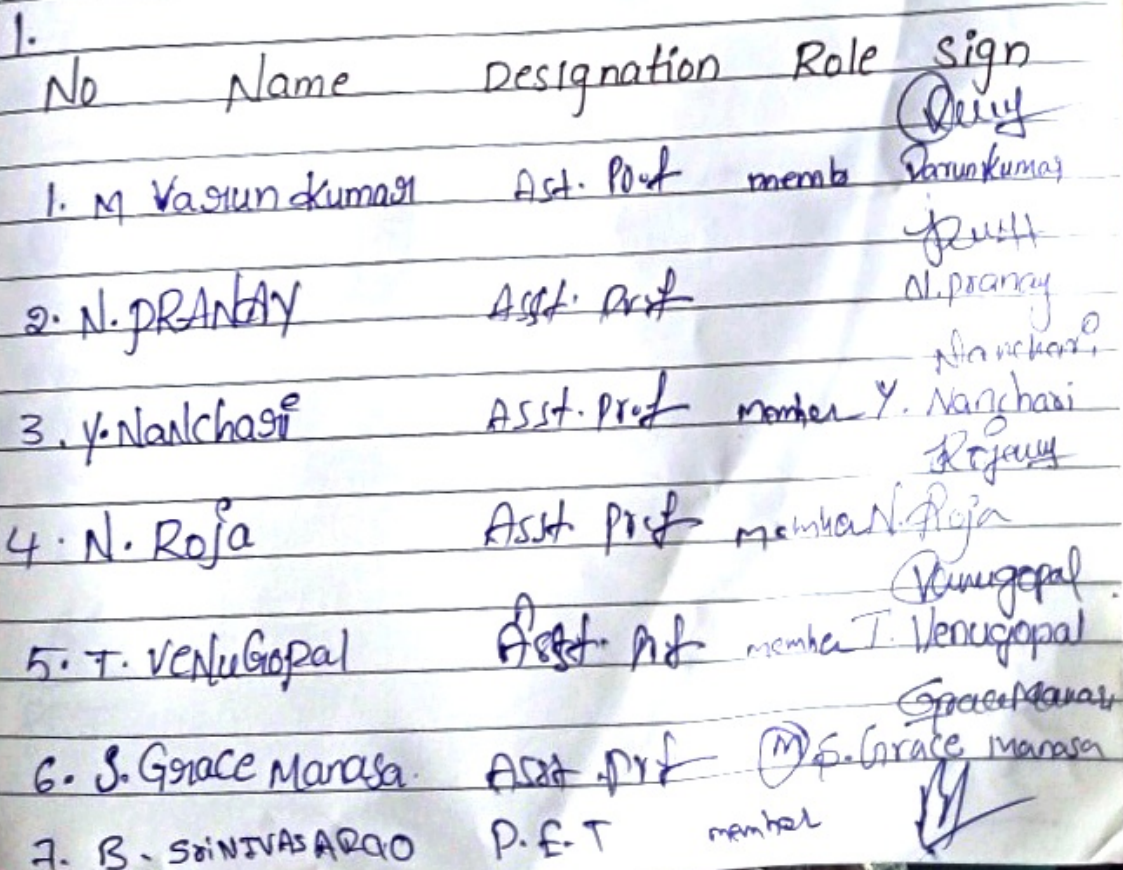 1.
No Name Designation Role Sign
1. M Varun Kumar Ast. Prof memb Varunkumar
2. N. PRANAY Asst. Prof N. pranay
Nanchari
3. Y. NaNchari Asst. Prof member Y. Nanchari
4. N. Roja Asst Prof member N. Roja
Venugopal
5. T. VENuGopal Asst. Prf member T. Venugopal
Grace Manas
6. S. Grace Manasa. Asst. Prf M S. Grace manasa
7. B. SriNIVASARAO P.E.T member